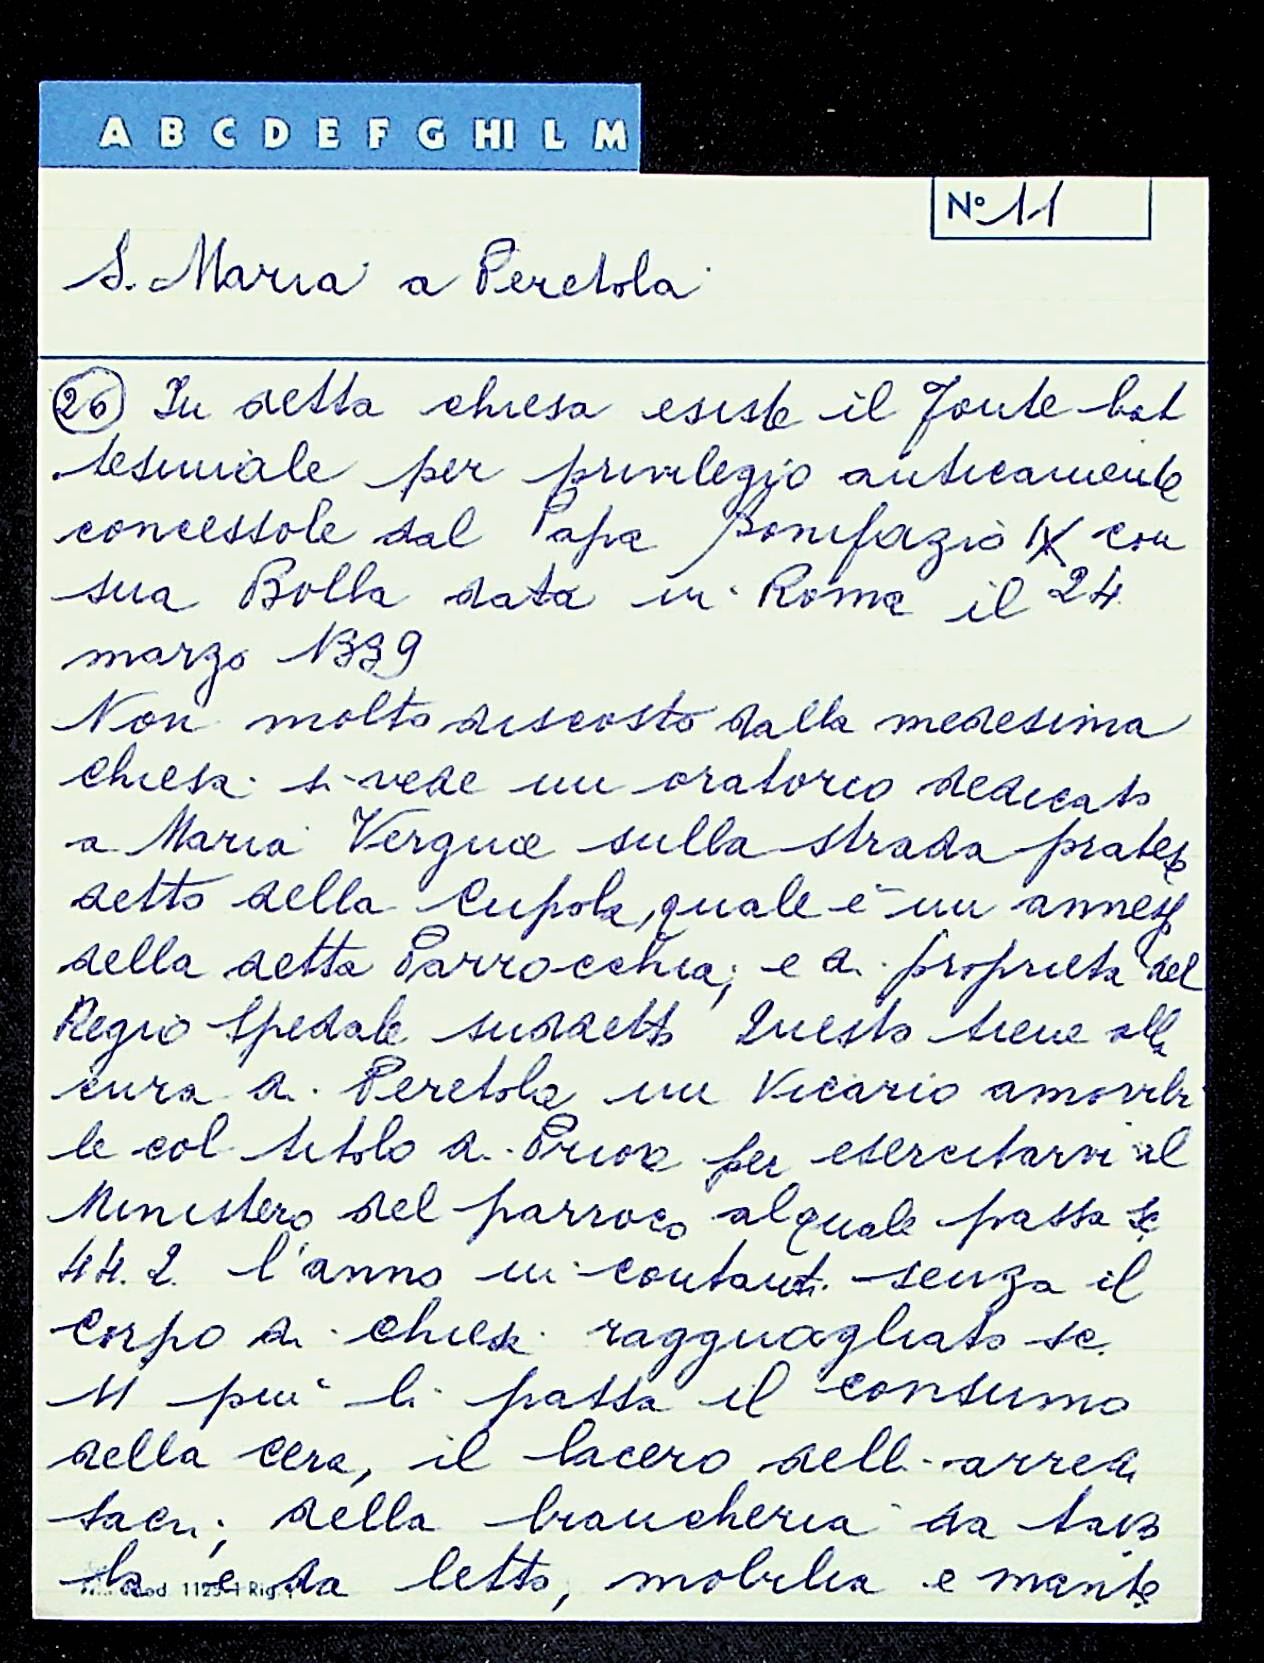 A B C D E F G HI L M
Nº 11
S. Maria a Peretola
26 In detta chiesa esiste il fonte bat
tesimale per privilegio anticamente
concessole dal Papa Bonifazio IX con
sua Bolla data in Roma il 24
marzo 1399
Non molto discosto dalla medesima
chiesa si vede un oratorio dedicato
a Maria Vergine sulla strada pratese
detto della Cupola, quale è un annesso
della detta Parrocchia, e di proprietà del
Regio Spedale suddetto Questo tiene alla
cura di Peretola un Vicario amovibi
le col titolo di Priore per esercitarvi il
Ministero del parroco al quale passa sc
44. 2. l'anno in contanti senza il
corpo di chiesa ragguagliato sc.
11 più li passa il consumo
della cera, il lacero delli arredi
sacri, della biancheria da tavo
la e da letto, mobilia e mante
Mod. 1125-1 Rig.